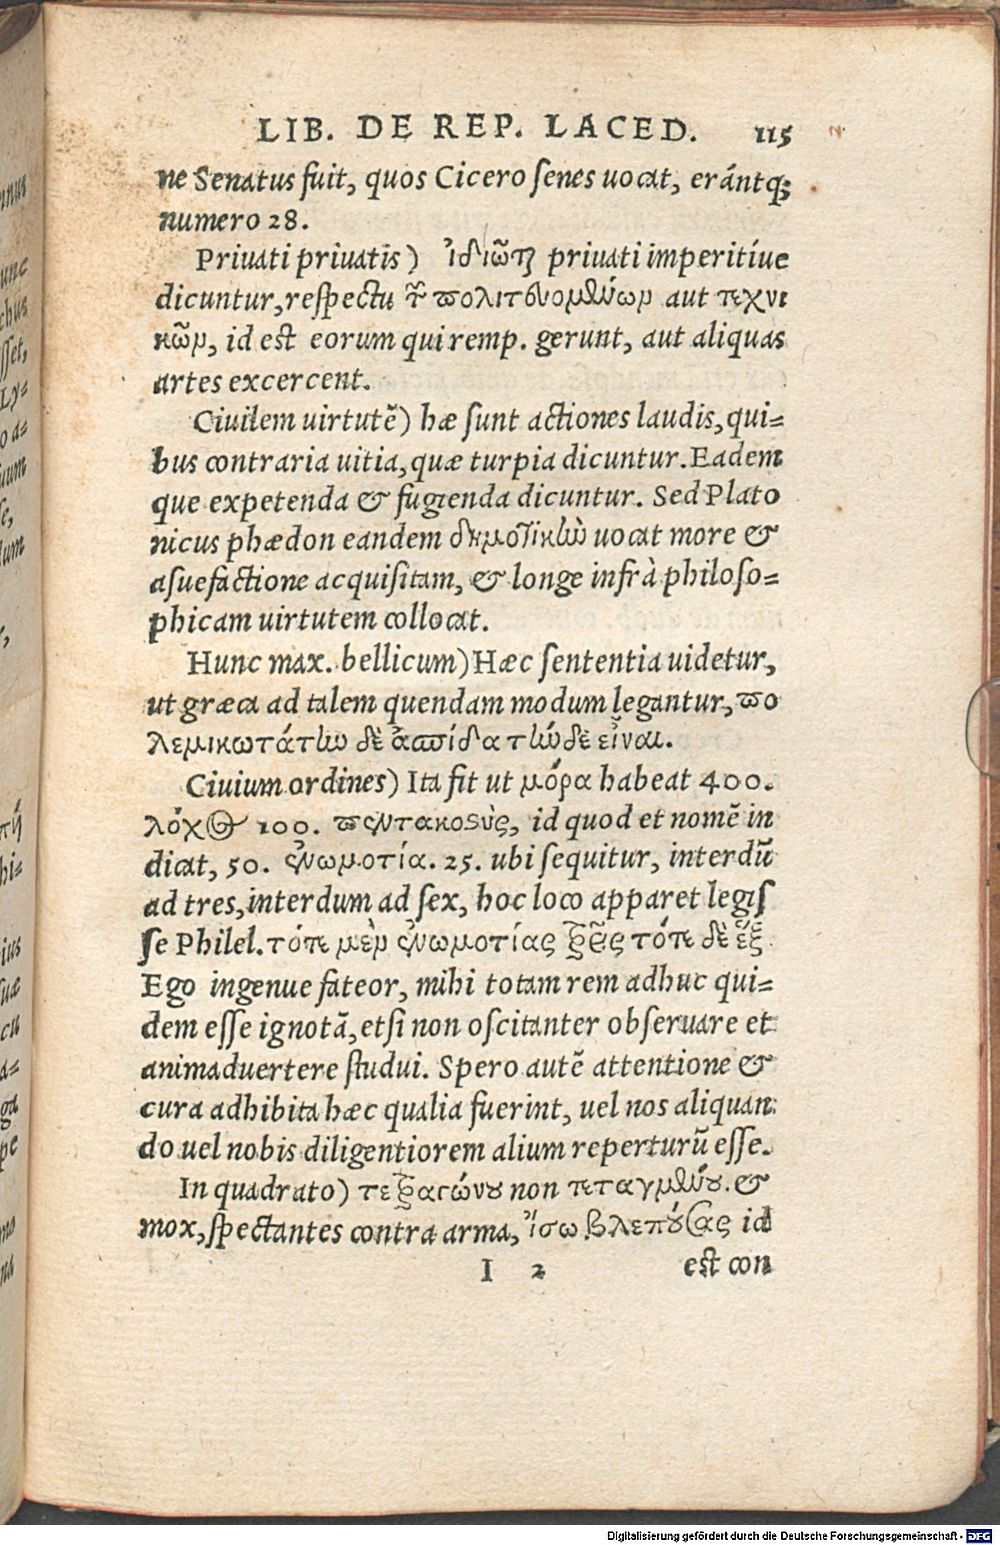 LIB. DE REP. LACED. 115
ne Senatus fuit, quos Cicero senes uocat, erántq;
numero 28.
Priuati priuatis) ἰδιῶται priuati imperitiue
dicuntur, respectu τῶν πολιτευομένων aut τεχνι
κῶν, id est eorum qui remp. gerunt, aut aliquas
artes excercent.
Ciuilem uirtutẽ) hæ sunt actiones laudis, qui=
bus contraria uitia, quæ turpia dicuntur. Eadem
que expetenda & fugienda dicuntur. Sed Plato
nicus phædon eandem δημοτικὴν uocat more &
asuefactione acquisitam, & longe infrà philoso=
phicam uirtutem collocat.
Hunc max. bellicum) Hæc sententia uidetur,
ut græca ad talem quendam modum legantur, πο
λεμικωτάτην δὲ ἀσπίδα τὴν δὲ εἶναι.
Ciuium ordines) Ita fit ut μόρα habeat 400.
λόχος 100. πεντακοστὺς, id quod et nomẽ in
dicat, 50. ἐνωμοτία. 25. ubi sequitur, interdũ
ad tres, interdum ad sex, hoc loco apparet legis
se Philel. τότε μὲν ἐνωμοτίας τρεῖς τότε δὲ ἓξ
Ego ingenue fateor, mihi totam rem adhuc qui=
dem esse ignotã, etsi non oscitanter obseruare et
animaduertere studui. Spero autẽ attentione &
cura adhibita hæc qualia fuerint, uel nos aliquan
do uel nobis diligentiorem alium reperturũ esse.
In quadrato) τετραγώνου non τεταγμένου. &
mox, spectantes contra arma, ἴσω βλεπούσας id
I 2 est con
nnus
unc
chus
sset,
Ly=
o a=
uum
se,
dum
hi=
ius
suæ
cu
a=
ga
pe
Digitalisierung gefördert durch die Deutsche Forschungsgemeinschaft - DFG